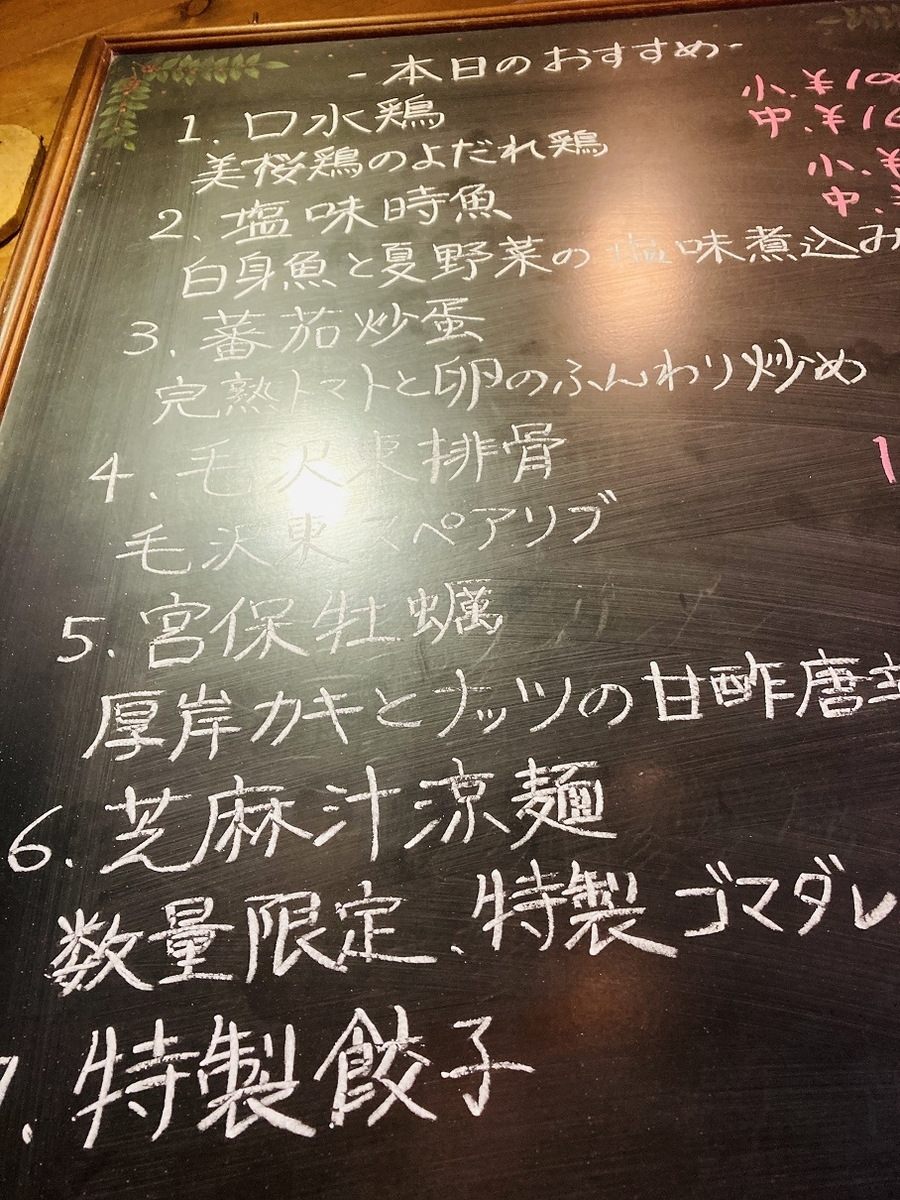 -本日のおすすめ-
1. 口水鶏 小.¥100
中.¥16
美桜鶏のよだれ鶏
2. 塩味時魚 小.¥
中.¥
白身魚と夏野菜の塩味煮込み
3. 蕃茄炒蛋
完熟トマトと卵のふんわり炒め
4. 毛沢東排骨 1
毛沢東スペアリブ
5. 宮保牡蠣
厚岸カキとナッツの甘酢唐辛
6. 芝麻汁涼麺
数量限定、特製ゴマダレ
7. 特製餃子